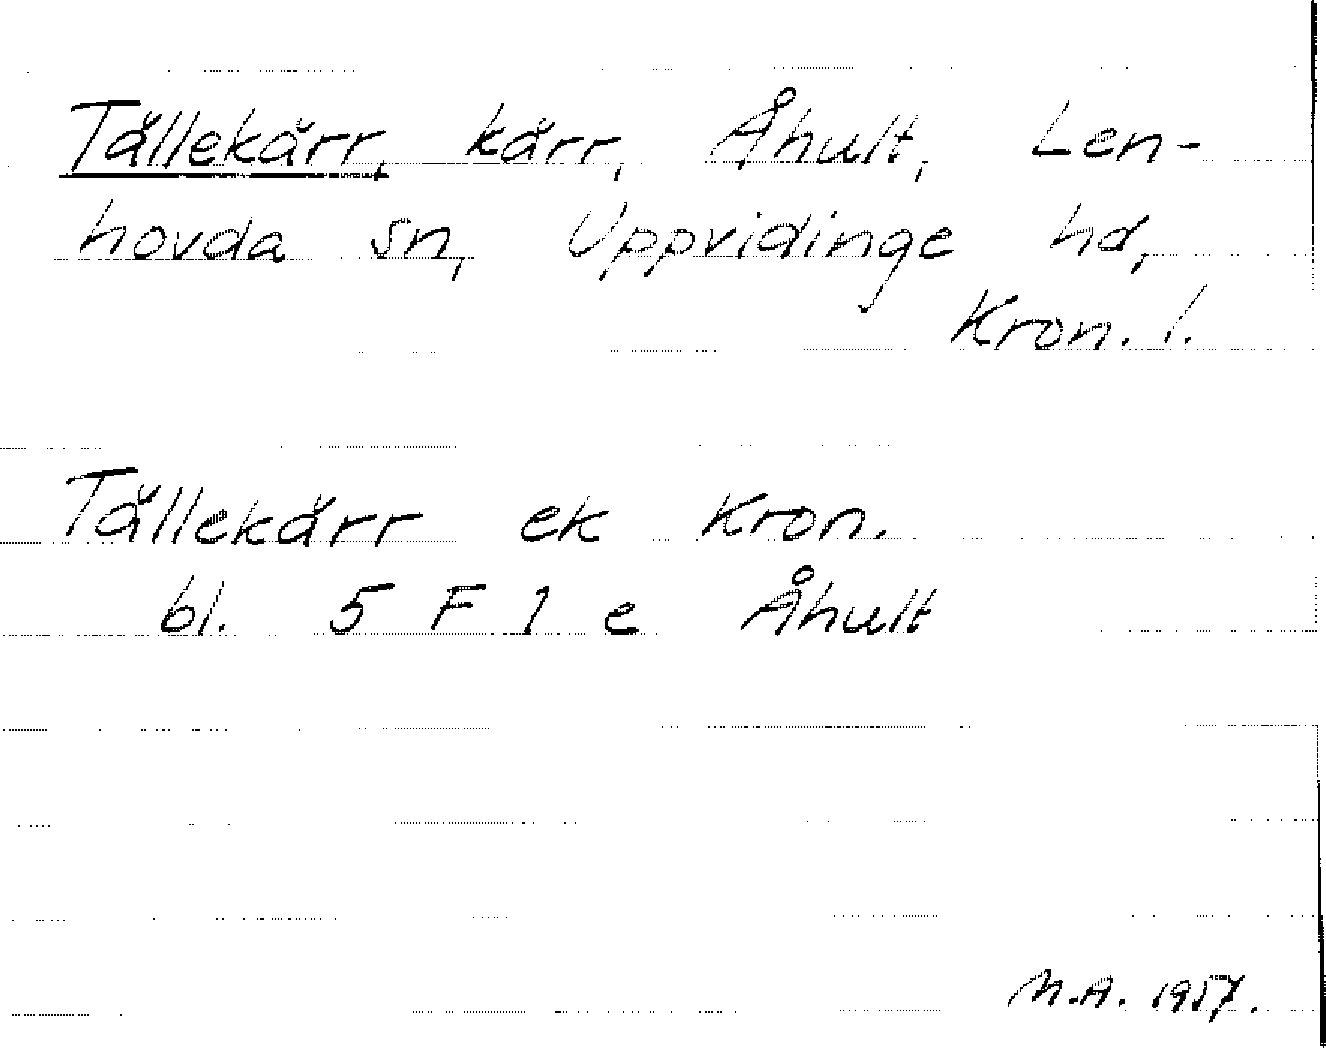 Tällekärr, kärr, Åhult, Len-
hovda sn, Uppvidinge hd,
Kron. l.
Tällekärr ek Kron.
bl. 5 F 1 e Åhult
M.A. 1957.